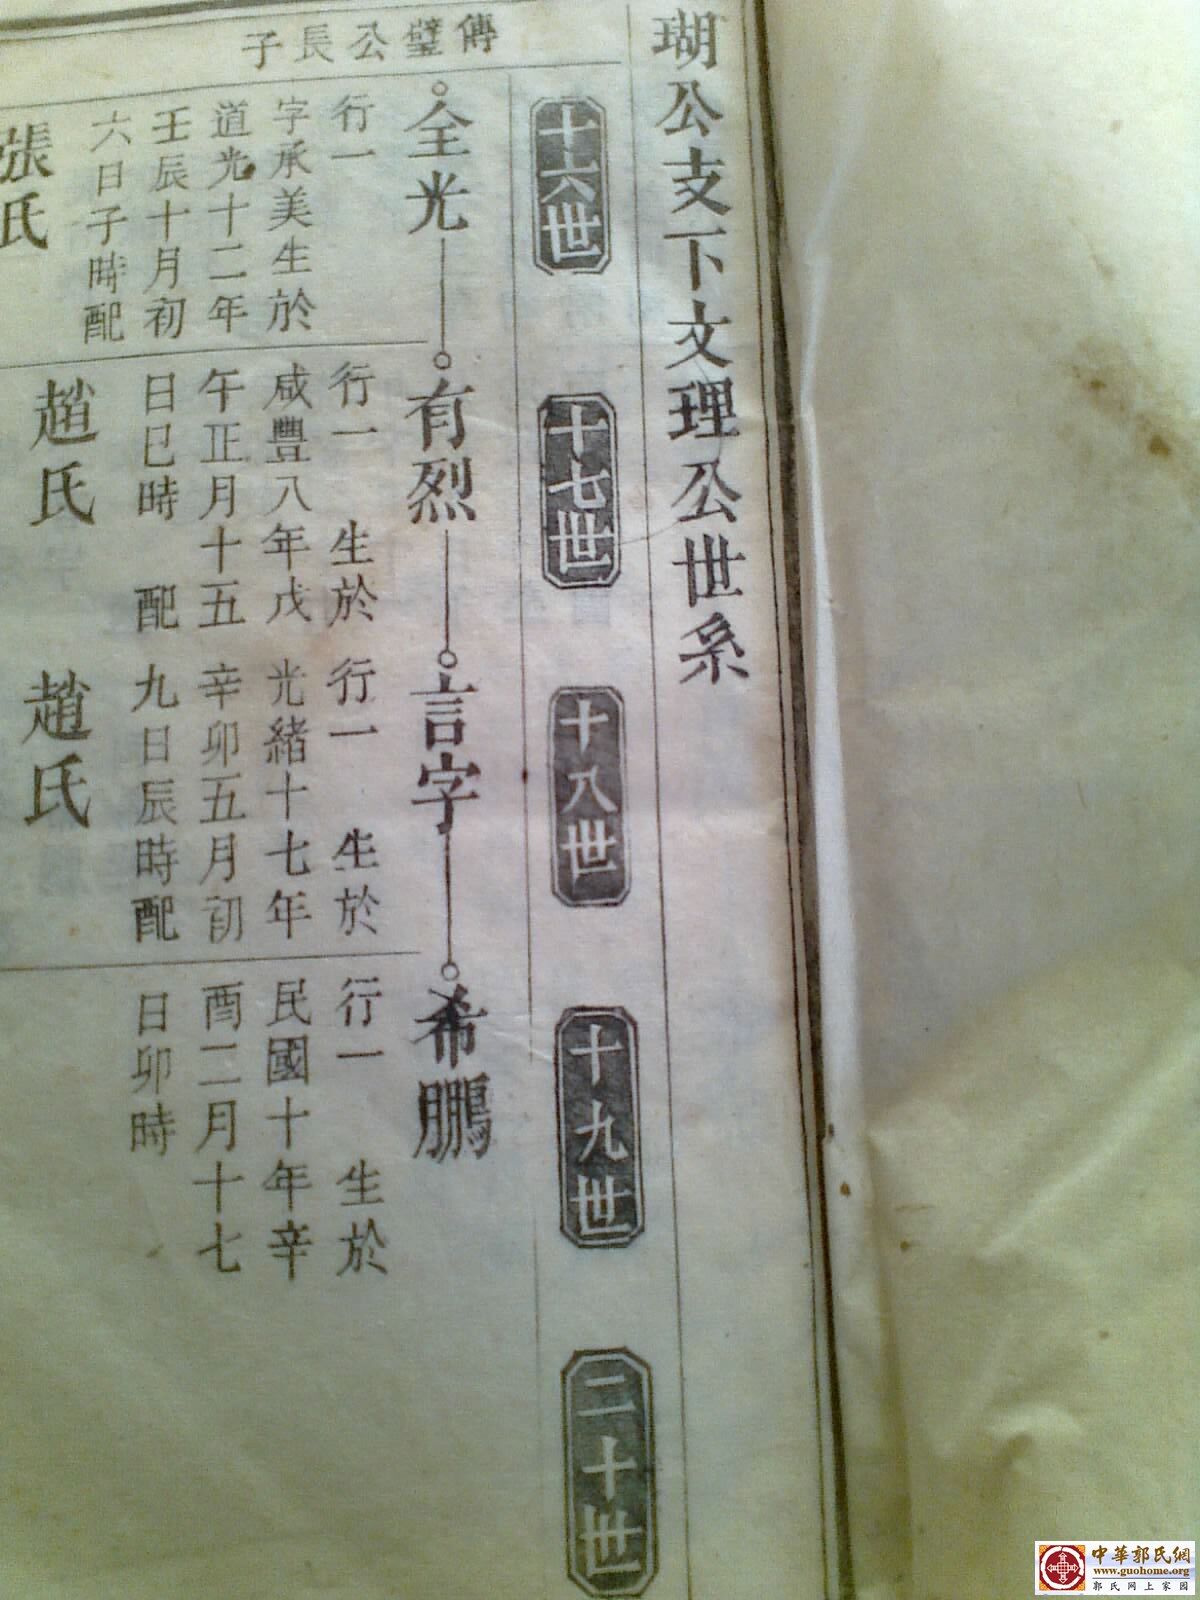 瑚公支下文理公世系
十六世
十七世
十八世
十九世
二十世
傳璧公長子
全光
行一
字承美生於
道光十二年
壬辰十月初
六日子時配
張氏
有烈
行一 生於
咸豐八年戊
午正月十五
日巳時 配
趙氏
言字
行一 生於
光緒十七年
辛卯五月初
九日辰時配
趙氏
希鵬
行一 生於
民國十年辛
酉二月十七
日卯時
中華郭氏網
www.guohome.org
郭氏网上家园